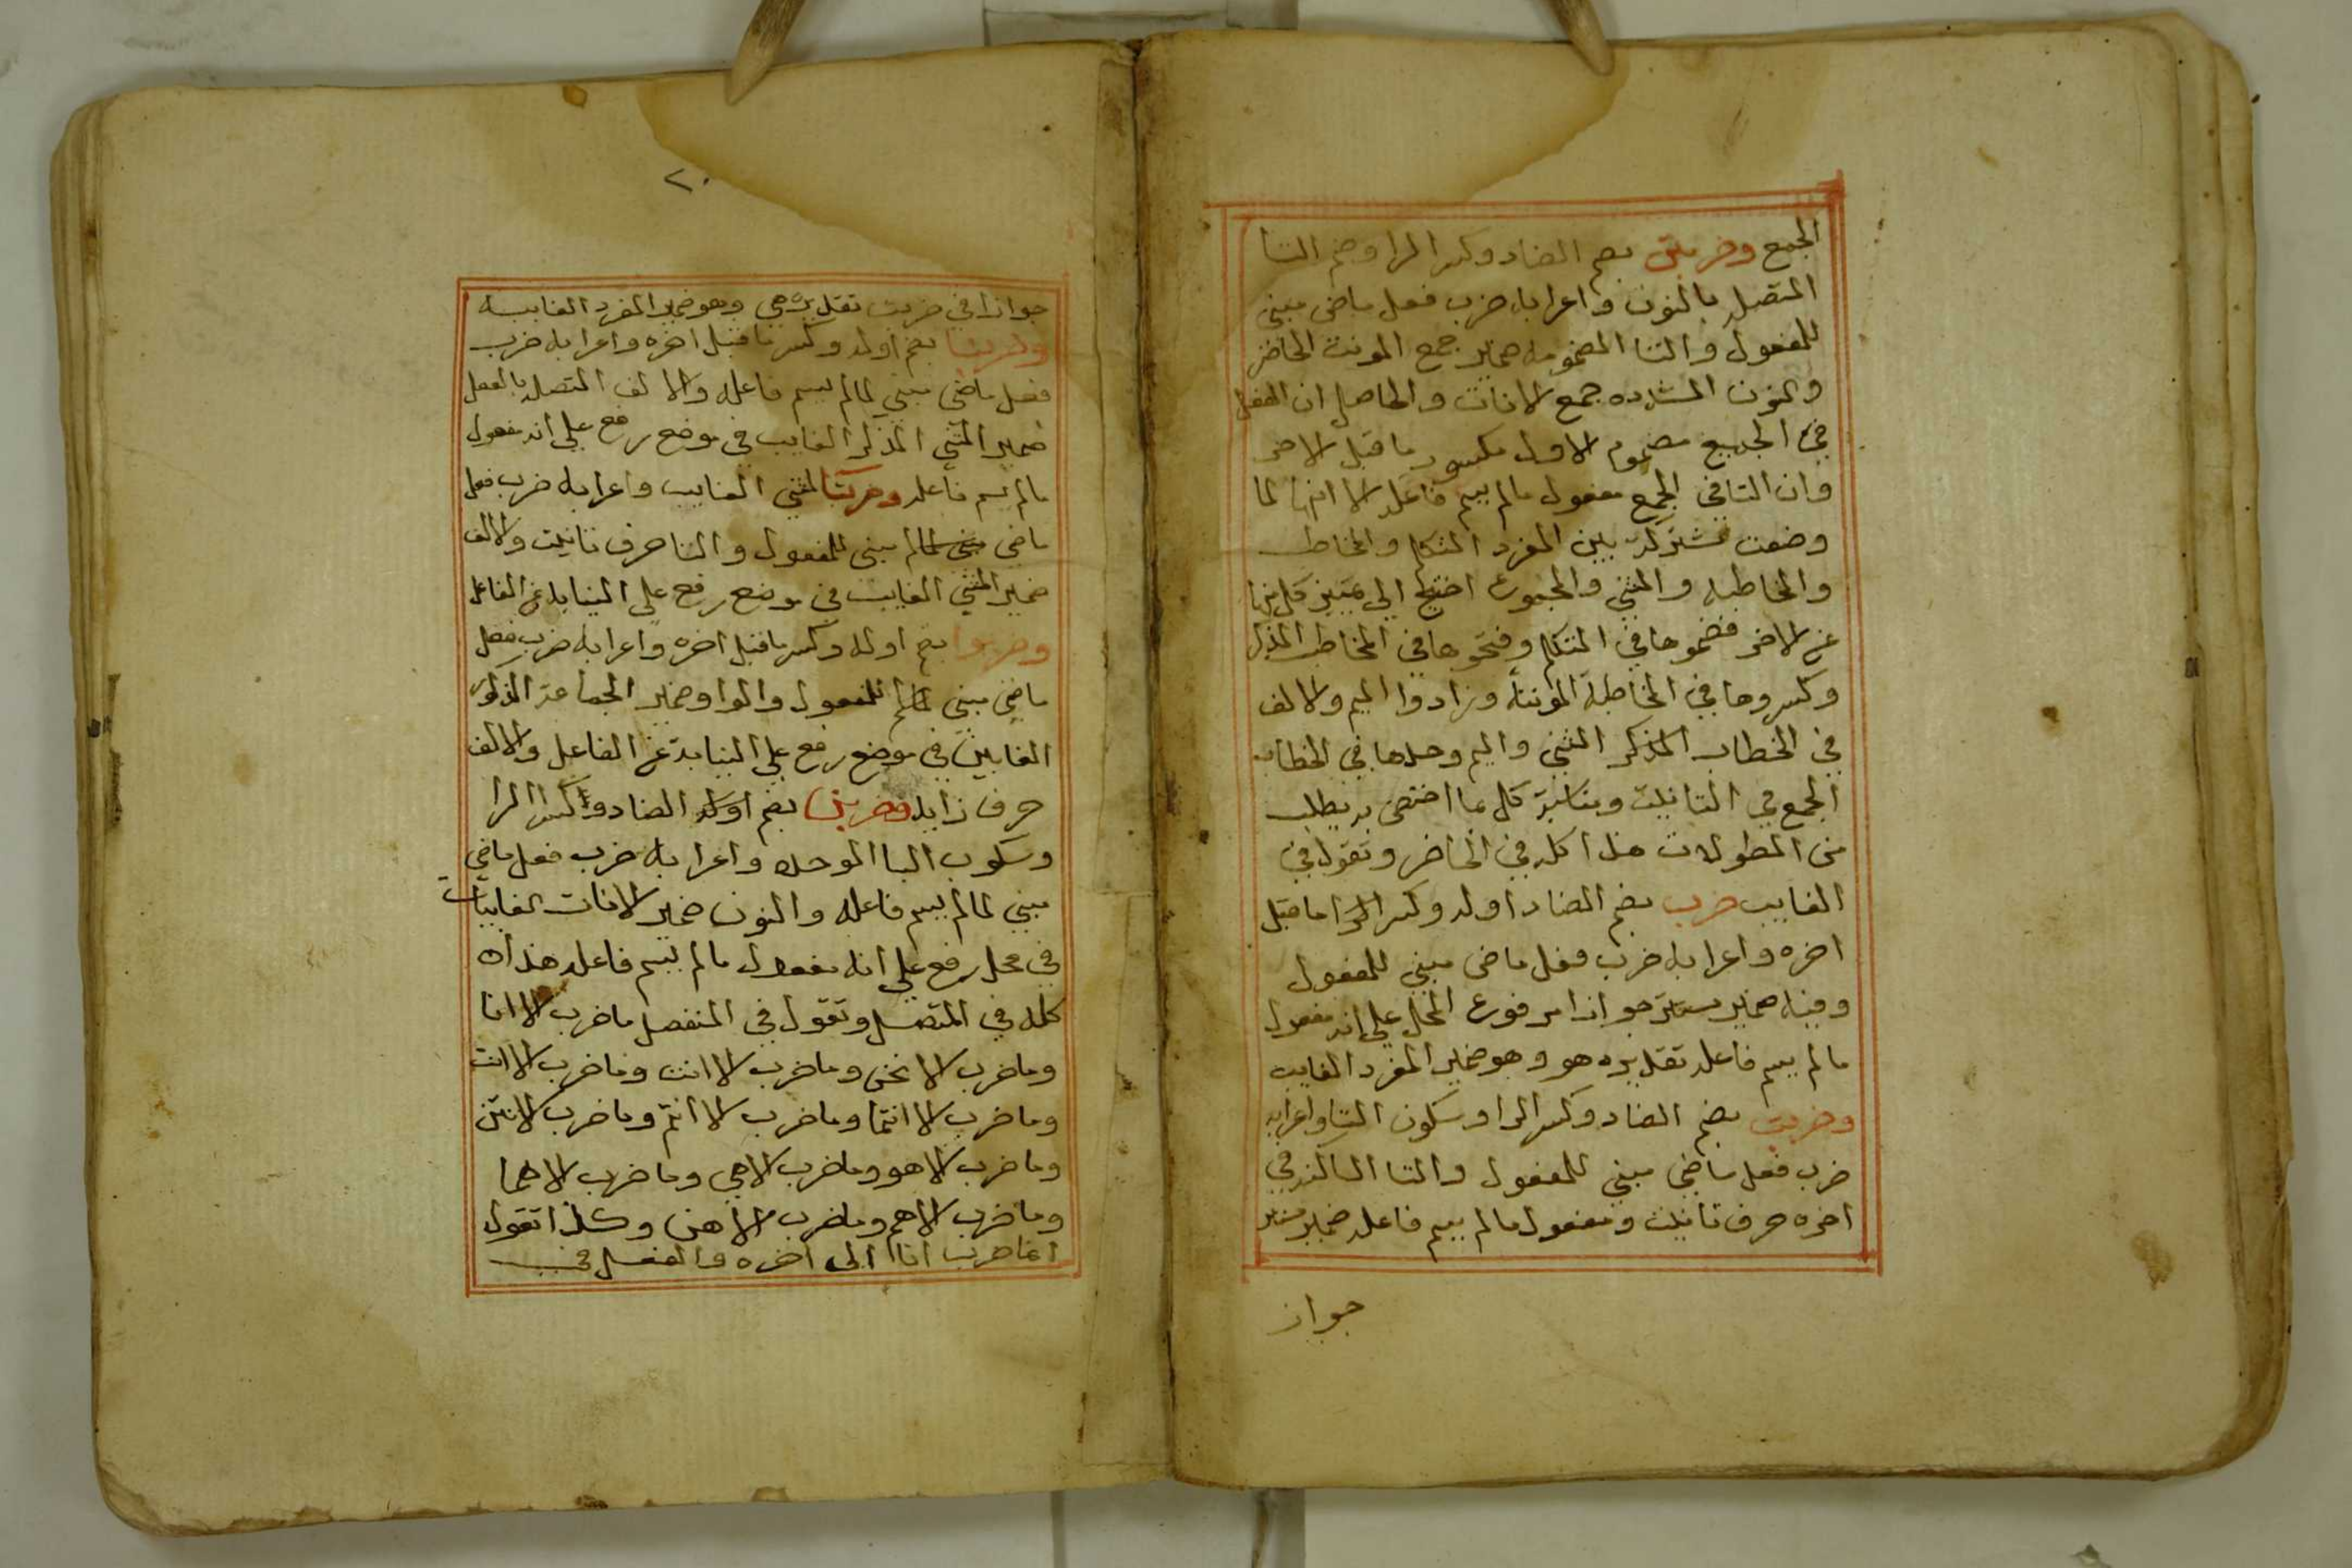 الجمع وضربتن بضم الضاد وكسر الرا وضم التا
المتصل بالنون واعرابه ضرب فعل ماضى مبنى
للمفعول والتا المضمومه ضمير جمع المونث الحاضر
والنون المشدده جمع الاناث والحاصل ان الفعل
في الجميع مضموم الاول مكسور ما قبل الاخر
وان التا في الجمع مفعول مالم يسم فاعله الا انها لما
وضعت مشتركة بين المفرد المتكلم والمخاطب
والمخاطبه والمثنى والمجموع احتيج الي تمييز كل منها
عن الاخر فضموها في المتكلم وفتحوها في المخاطب المذكر
وكسروها في المخاطبة المونثة وزادوا الميم والالف
في الخطاب المذكر المثنى والميم وحدها في الخطاب
الجمع في التانيث ومناسبة كل بما اختص به يطلب
من المطولات هذا كله في الحاضر وتقول في
الغايب ضرب بضم الضاد اوله وكسر الرا ما قبل
اخره واعرابه ضرب فعل ماضى مبنى للمفعول
وفيه ضمير مستتر جوازا مرفوع المحل علي انه مفعول
مالم يسم فاعله تقديره هو وهو ضمير المفرد الغايب
وضربت بضم الضاد وكسر الرا وسكون التا واعرابه
ضرب فعل ماضي مبني للمفعول والتا الساكنه في
اخره حرف تانيث ومفعول مالم يسم فاعله ضمير مستتر
جواز
٢٠
جوازا في ضربت تقديره هي وهو ضمير المفرد الغايبه
وضربا بضم اوله وكسر ما قبل اخره واعرابه ضرب
فعل ماضي مبني لمالم يسم فاعله والالف المتصل بالفعل
ضمير المثني المذكر الغايب في موضع رفع علي انه مفعول
مالم يسم فاعله وضربتا لمثني الغايب واعرابه ضرب فعل
ماضي مبني لمالم مبنى للمفعول والتا حرف تانيث والالف
ضمير المثني الغايب في موضع رفع علي النيابه عن الفاعل
وضربوا بضم اوله وكسر ما قبل اخره واعرابه ضرب فعل
ماضي مبني لمالم للمفعول والواو ضمير الجماعة الذكور
الغايبين في موضع رفع علي النيابة عن الفاعل والالف
حرف زايد وضربن بضم اوله الضاد وكسر الرا
وسكون البا الموحده واعرابه ضرب فعل ماضي
مبني لمالم يسم فاعله والنون ضمير الاناث الغايبات
في محل رفع علي انه مفعول مالم يسم فاعله هذا
كله في المتصل وتقول في المنفصل ما ضرب الا انا
وما ضرب الا نحن وما ضرب الا انت وما ضرب الا انت
وما ضرب الا انتما وما ضرب الا انتم وما ضرب الا انتن
وما ضرب الا هو وما ضرب الا هي وما ضرب الا هما
وما ضرب الا هم وما ضرب الا هن وكذا تقول
انما ضرب انا الى اخره والفعل في